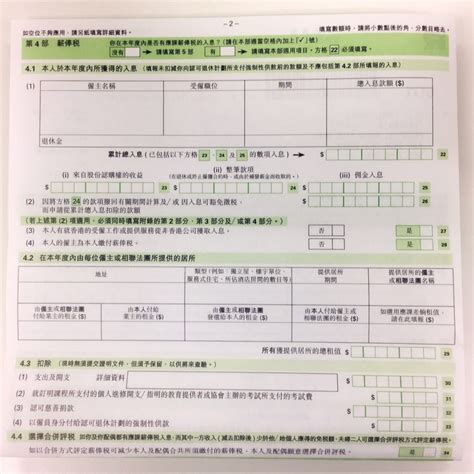 - 2 -
如空位不夠應用，請另紙填寫詳細資料。 填寫數額時，請將小數點後的角、分數目略去。
第 4 部 薪俸稅 你在本年度內是否有應課薪俸稅的入息？(請在本部適當空格內加上「✓」號)
沒有 請無須填寫本部。 有 請填寫本部適用項目。方格 22 必須填寫。
4.1 本人於本年度內所獲得的入息 (填報未扣減你向認可退休計劃所支付強制性供款前的款額及不應包括第 4.2 部所填報的入息)
(1) 僱主名稱 受僱職位 期間 總入息款額 ($)
退休金
累計總入息 (已包括以下方格 23、24 及 25 的數項入息) $ 22
(i) 來自股份認購權的收益 (ii) 整筆款項 (iii) 佣金入息
(在退休或終止僱傭合約時，或由於補發薪金而收取的)
$ 23 $ 24 $ 25
(2) 因將方格 24 的款項撥回有關期間計算及／或 因入息可豁免徵稅
而申請從累計總入息扣除的款額 $ 26
(若上述第 (2) 項適用，必須同時填寫附錄的第 2 部分、第 3 部分及／或第 4 部分。)
(3) 本人有就香港的受僱工作或提供服務從非香港公司獲取入息。 否 是 27
(4) 本人的僱主為本人繳付薪俸稅。 否 是 28
4.2 在本年度內由每位僱主或相聯法團所提供的居所
地址 類型 (例如：獨立屋、樓宇單位、服務式住宅、所佔酒店房間的數目等) 提供居所期間 提供居所的僱主或相聯法團名稱
由僱主或相聯法團付給業主的租金 ($) 由本人付給業主的租金 ($) 由僱主或相聯法團發還給本人的租金 ($) 由本人付給僱主或相聯法團的租金 ($) 如選用應課差餉租值，請在此填報 ($)
所有獲提供居所的總租值 $ 29
4.3 扣除 (現時無須提交證明文件，但須予保留，以供將來查核。)
(1) 支出及開支 詳細資料 $ 30
(2) 就訂明課程所支付的個人進修開支／指明的教育提供者或協會主辦的考試所支付的考試費 $ 31
(3) 認可慈善捐款 $ 32
(4) 以僱員身分付給認可退休計劃的強制性供款 $ 33
4.4 選擇合併評稅 如你及你配偶都有應課薪俸稅入息，而其中一方收入 (減去扣除後) 少於他／她個人應得的免稅額，夫婦二人可選擇合併評稅。
如以合併方式評定薪俸稅可減少本人及我配偶共同繳付的薪俸稅，本人欲選擇以合併方式評定薪俸稅。 是 34